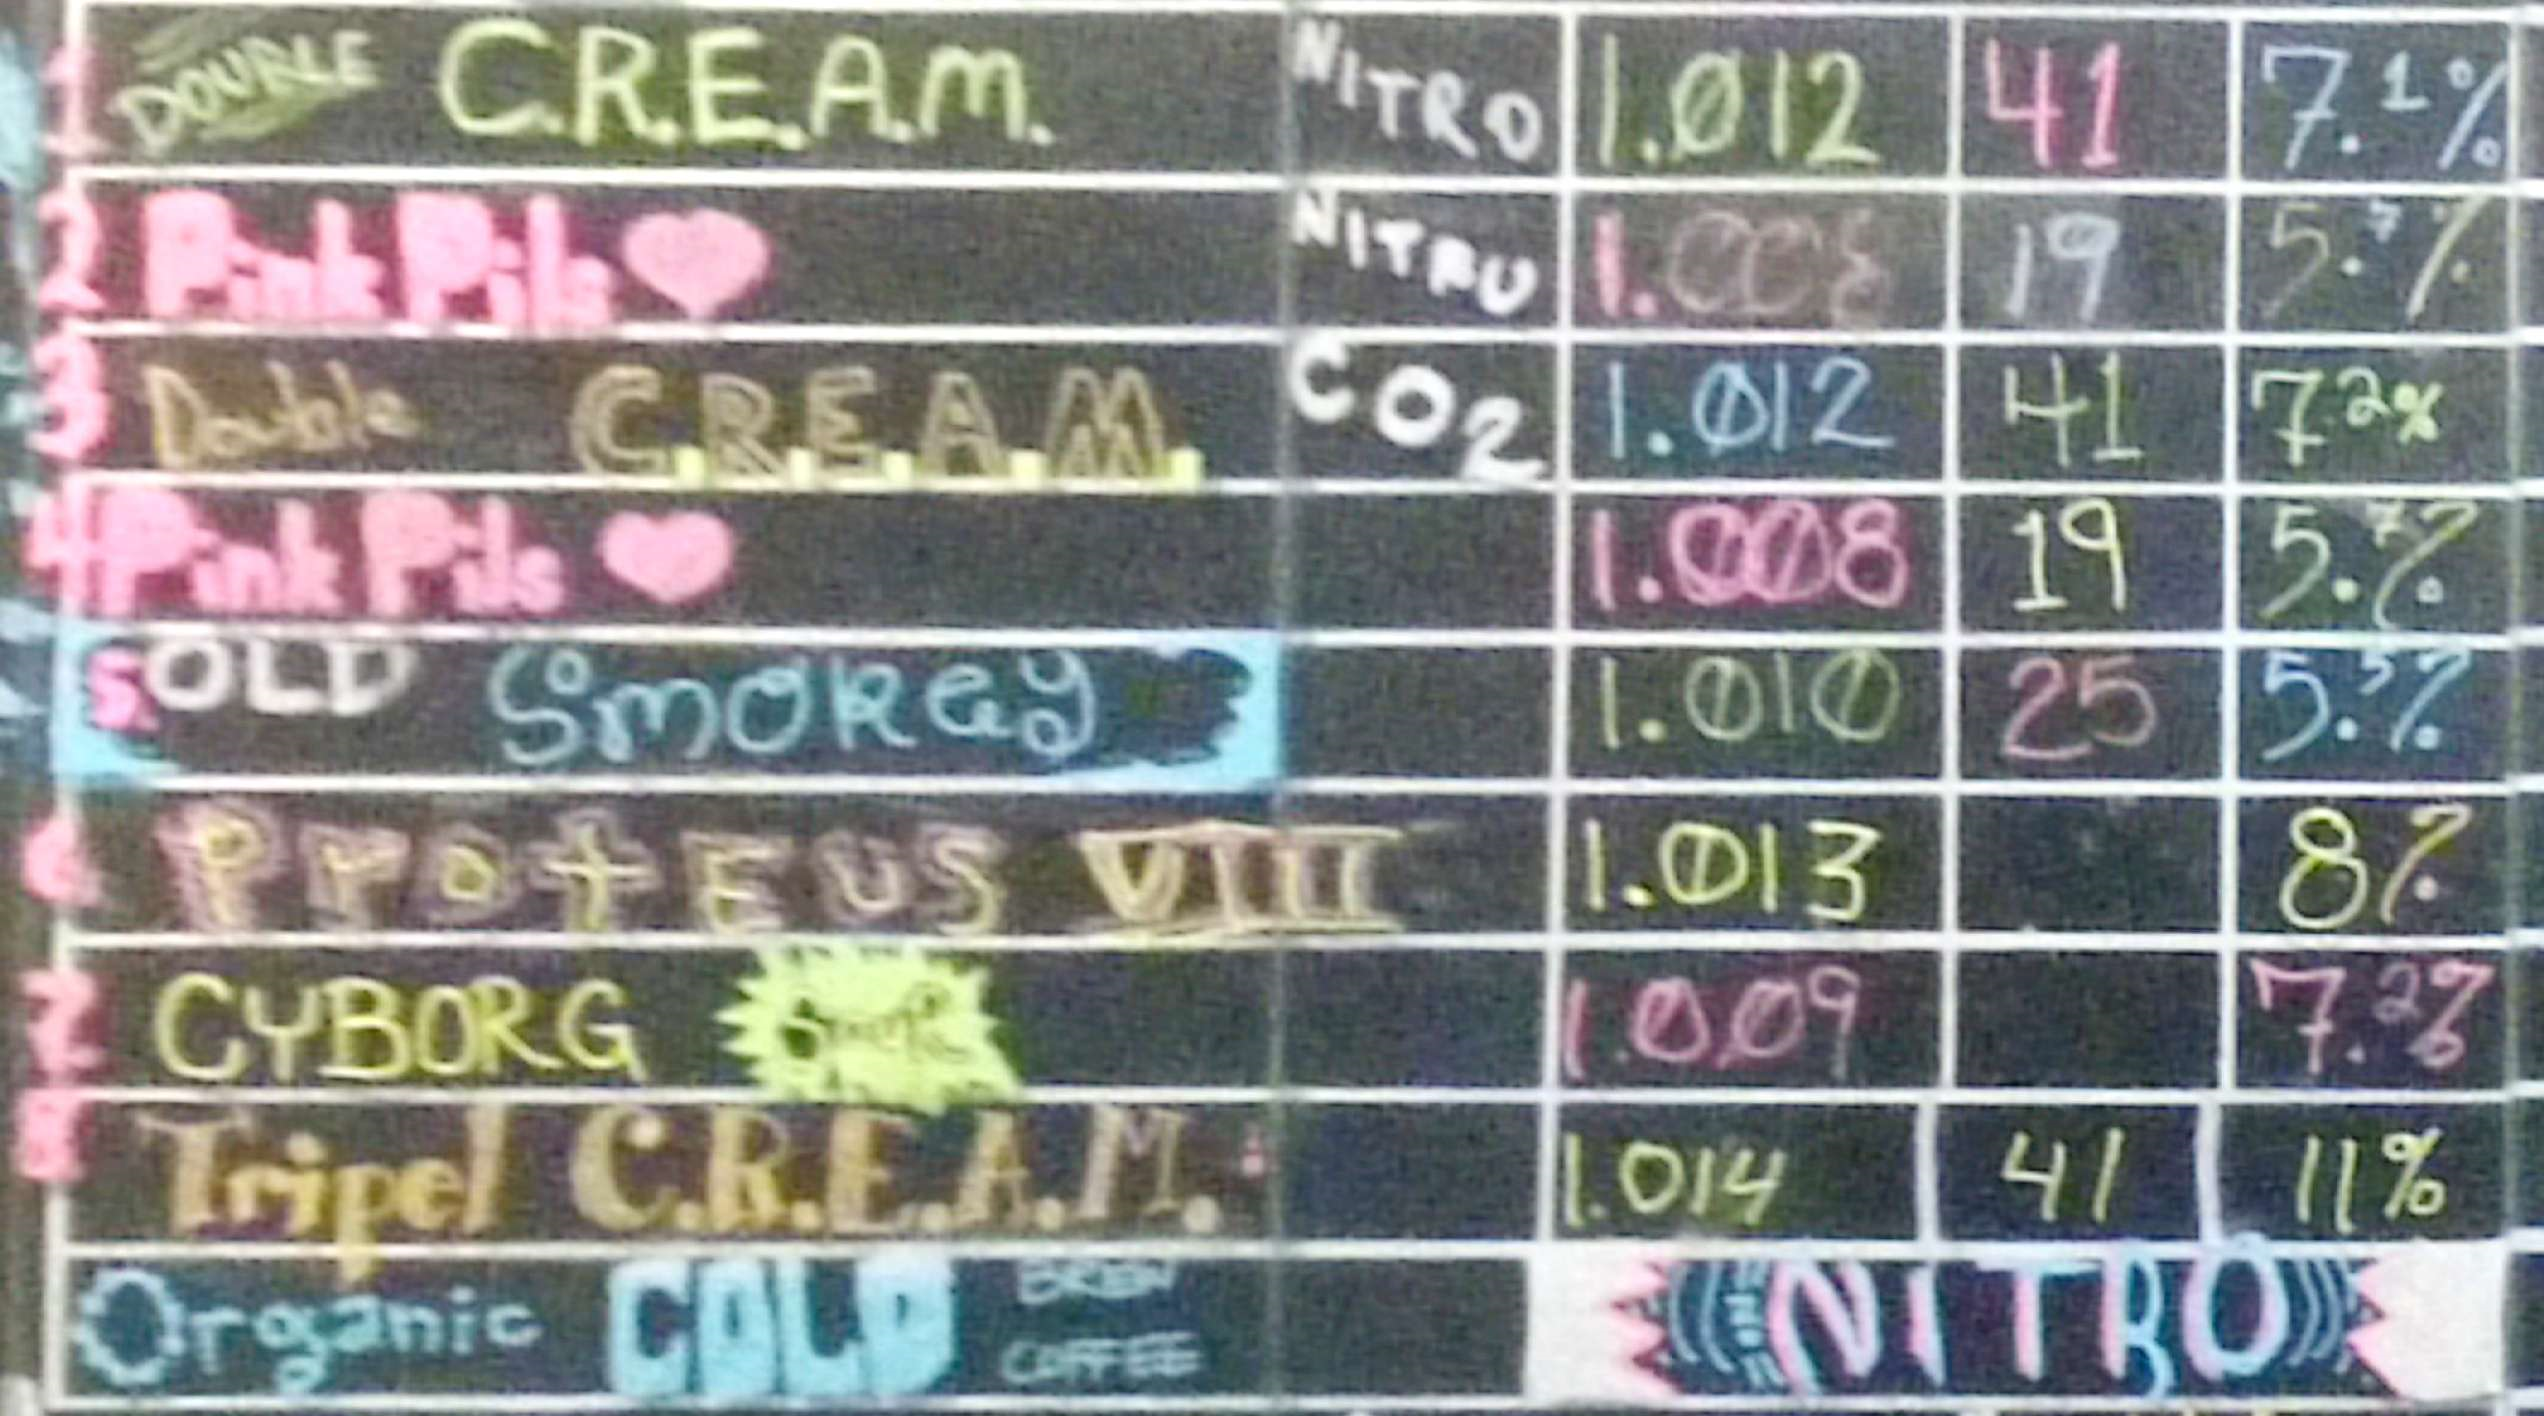 1 DOUBLE C.R.E.A.M. NITRO 1.012 41 7.1%
2 Pink Pils NITRO 1.008 19 5.7%
3 Double C.R.E.A.M. CO2 1.012 41 7.2%
4 Pink Pils 1.008 19 5.7%
5. OLD Smokey 1.010 25 5.5%
6 ProtEUS VIII 1.013 8%
7 CYBORG 1.009 7.2%
8 Tripel C.R.E.A.M. 1.014 41 11%
Organic COLD BREW COFFEE NITRO